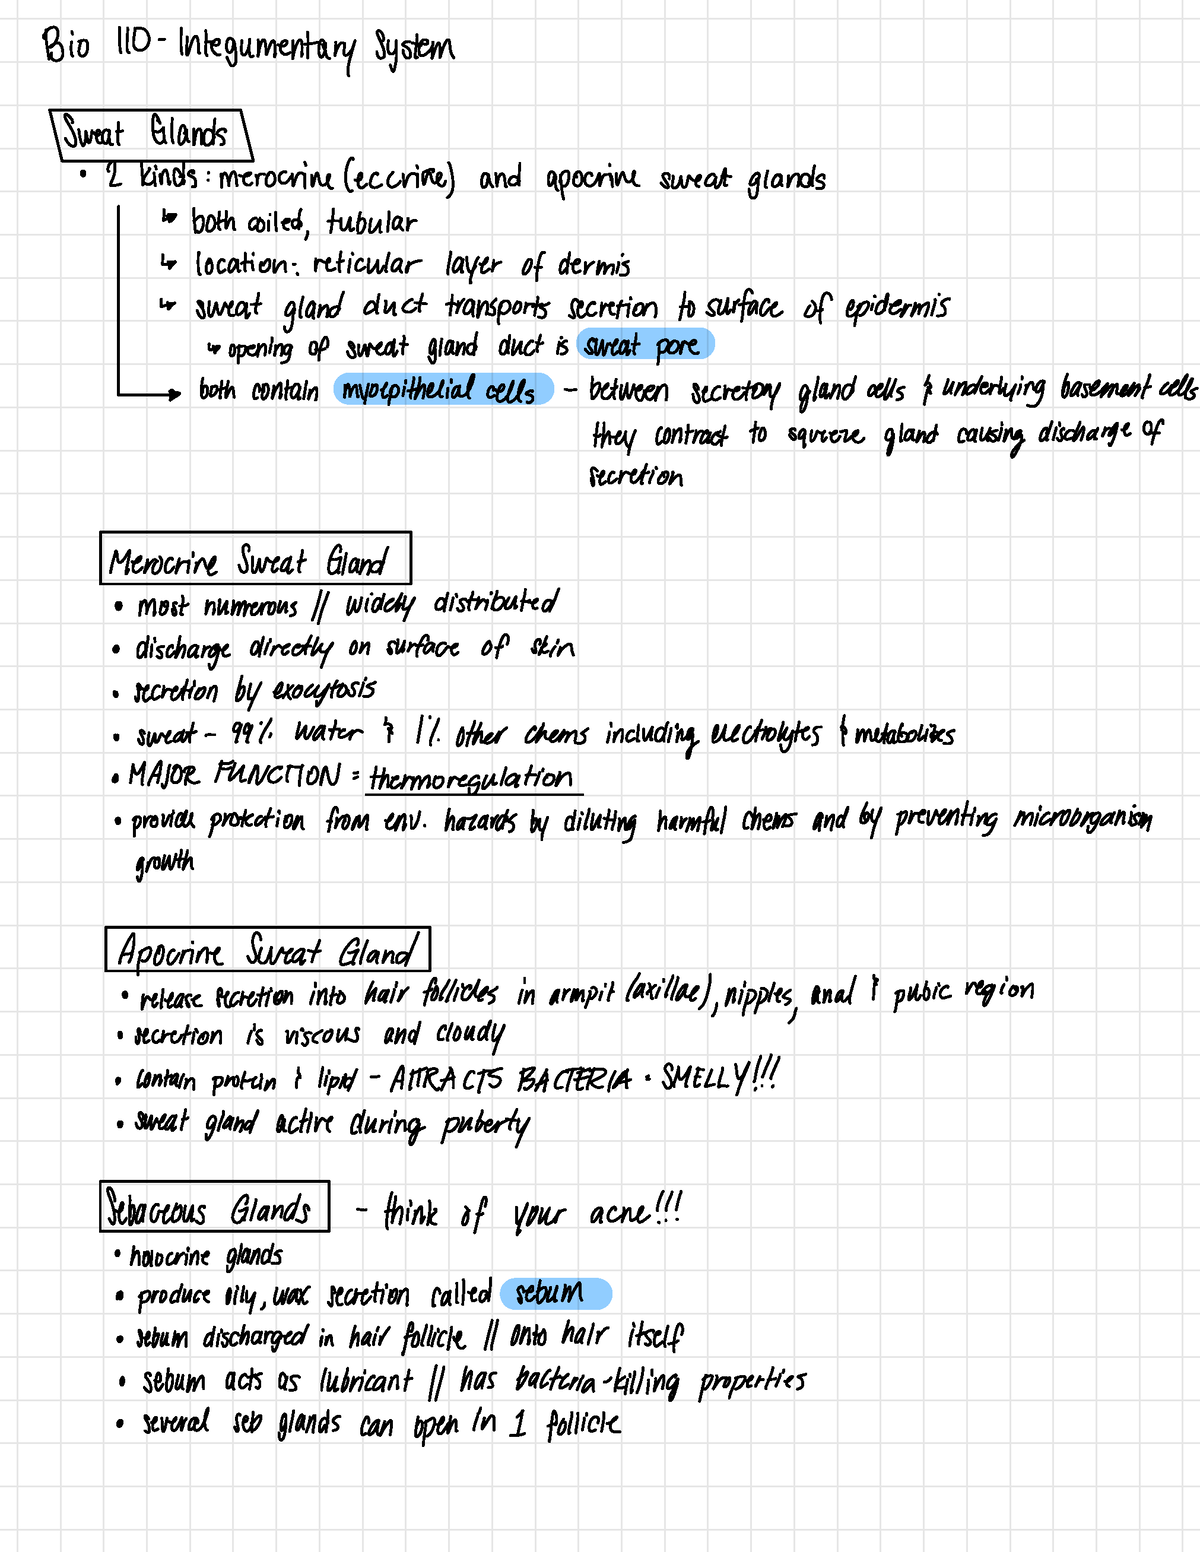 Bio 110 - Integumentary System
Sweat Glands
• 2 kinds: merocrine (eccrine) and apocrine sweat glands
↳ both coiled, tubular
↳ location: reticular layer of dermis
↳ sweat gland duct transports secretion to surface of epidermis
↳ opening of sweat gland duct is sweat pore
→ both contain myoepithelial cells - between secretory gland cells & underlying basement cells
they contract to squeeze gland causing discharge of
secretion
Merocrine Sweat Gland
• most numerous // widely distributed
• discharge directly on surface of skin
• secretion by exocytosis
• sweat - 99% water & 1% other chems including electrolytes & metabolites
• MAJOR FUNCTION = thermoregulation
• provide protection from env. hazards by diluting harmful chems and by preventing microorganism
growth
Apocrine Sweat Gland
• release secretion into hair follicles in armpit (axillae), nipples, anal & pubic region
• secretion is viscous and cloudy
• contain protein & lipid - ATTRACTS BACTERIA • SMELLY!!!
• sweat gland active during puberty
Sebaceous Glands - think of your acne!!!
• holocrine glands
• produce oily, wax secretion called sebum
• sebum discharged in hair follicle // onto hair itself
• sebum acts as lubricant // has bacteria-killing properties
• several seb glands can open in 1 follicle